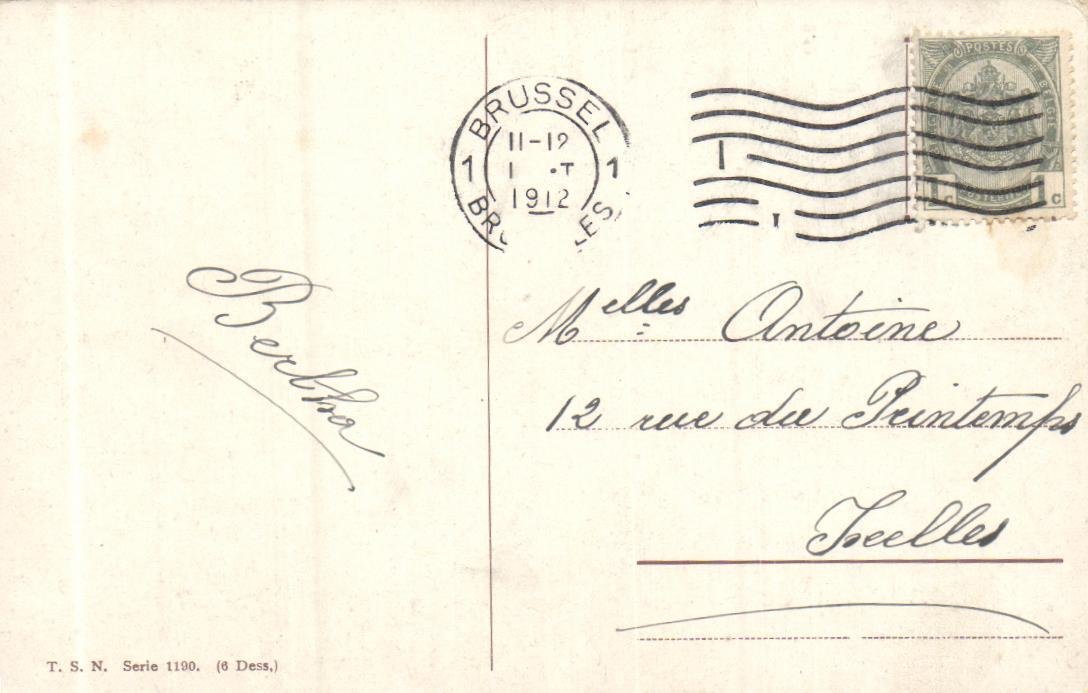 BRUSSEL
11-12
1 T
1912
1 1
POSTES
1 C
Bertha
Melles Antoine
12 rue du Printemps
Ixelles
T. S. N. Serie 1190. (6 Dess,)